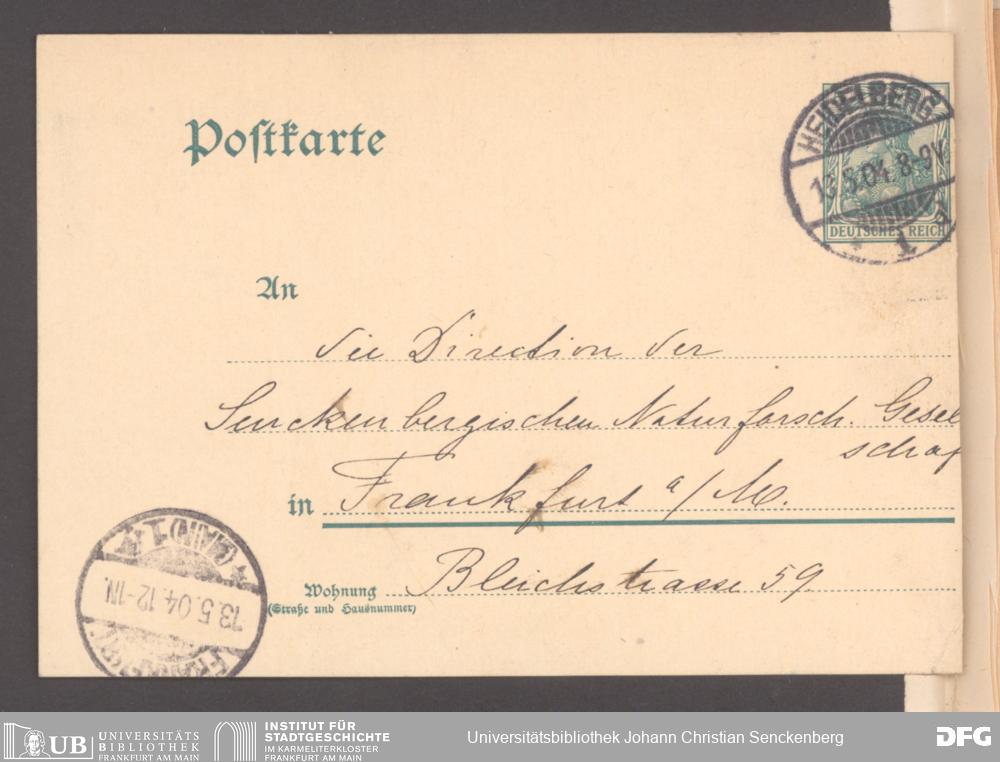 Postkarte
HEIDELBERG
13.5.04. 8-9V
1
DEUTSCHES REICH
An
die Direction der
Senckenbergischen Naturforsch. Gesel
schaf
in Frankfurt a/M.
Wohnung Bleichstrasse 59.
(Straße und Hausnummer)
(MAIN) 1
13.5.04. 12-1N.
UB UNIVERSITÄTS
BIBLIOTHEK
FRANKFURT AM MAIN
INSTITUT FÜR
STADTGESCHICHTE
IM KARMELITERKLOSTER
FRANKFURT AM MAIN
Universitätsbibliothek Johann Christian Senckenberg
DFG